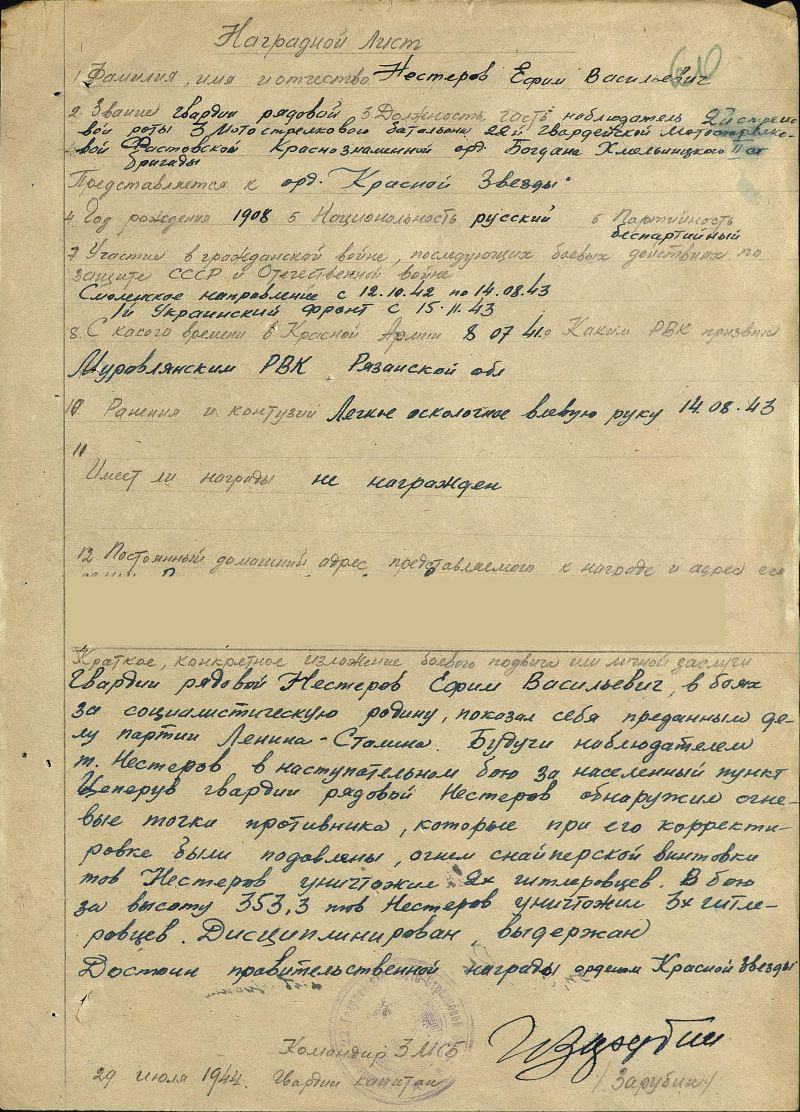 Наградной Лист
1. Фамилия, имя и отчество Нестеров Ефим Васильевич
2. Звание гвардии рядовой 3 Должность, часть наблюдатель 2й стрелко
вой роты 3 Мотострелкового батальона 22й Гвардейской Мотострелко-
вой Фастовской Краснознаменной орд. Богдана Хмельницкого II ст
бригады
Представляется к орд. Красной Звезды.
4. Год рождения 1908 5 Национальность русский 6 Партийность
беспартийный
7 Участие в гражданской войне, последующих боевых действиях по
защите СССР и Отечественной войне
Смоленское направление с 12.10.42 по 14.08.43
1й Украинский фронт с 15.11.43
8. С какого времени в Красной Армии 8 07 41г. Каким РВК призван
Муровлянским РВК Рязанской обл
10 Ранения и контузии Легкое осколочное влевую руку 14.08.43
11
Имеет ли награды не награжден
12 Постоянный домашний адрес представляемого к награде и адрес его
Краткое, конкретное изложение боевого подвига или личной заслуги
Гвардии рядовой Нестеров Ефим Васильевич, в боях
за социалистическую родину, показал себя преданным де-
лу партии Ленина-Сталина. Будучи наблюдателем
т. Нестеров в наступательном бою за населенный пункт
Цеперув гвардии рядовой Нестеров обнаружил огне-
вые точки противника, которые при его корректи-
ровке были подавлены, огнем снайперской винтовки
тов Нестеров уничтожил 2х гитлеровцев. В бою
за высоту 353,3 тов Нестеров уничтожил 3х гитле-
ровцев. Дисциплинирован, выдержан
Достоин правительственной награды орденом Красной Звезды
Командир 3 МСБ
29 июля 1944. Гвардии капитан /Зарубин/